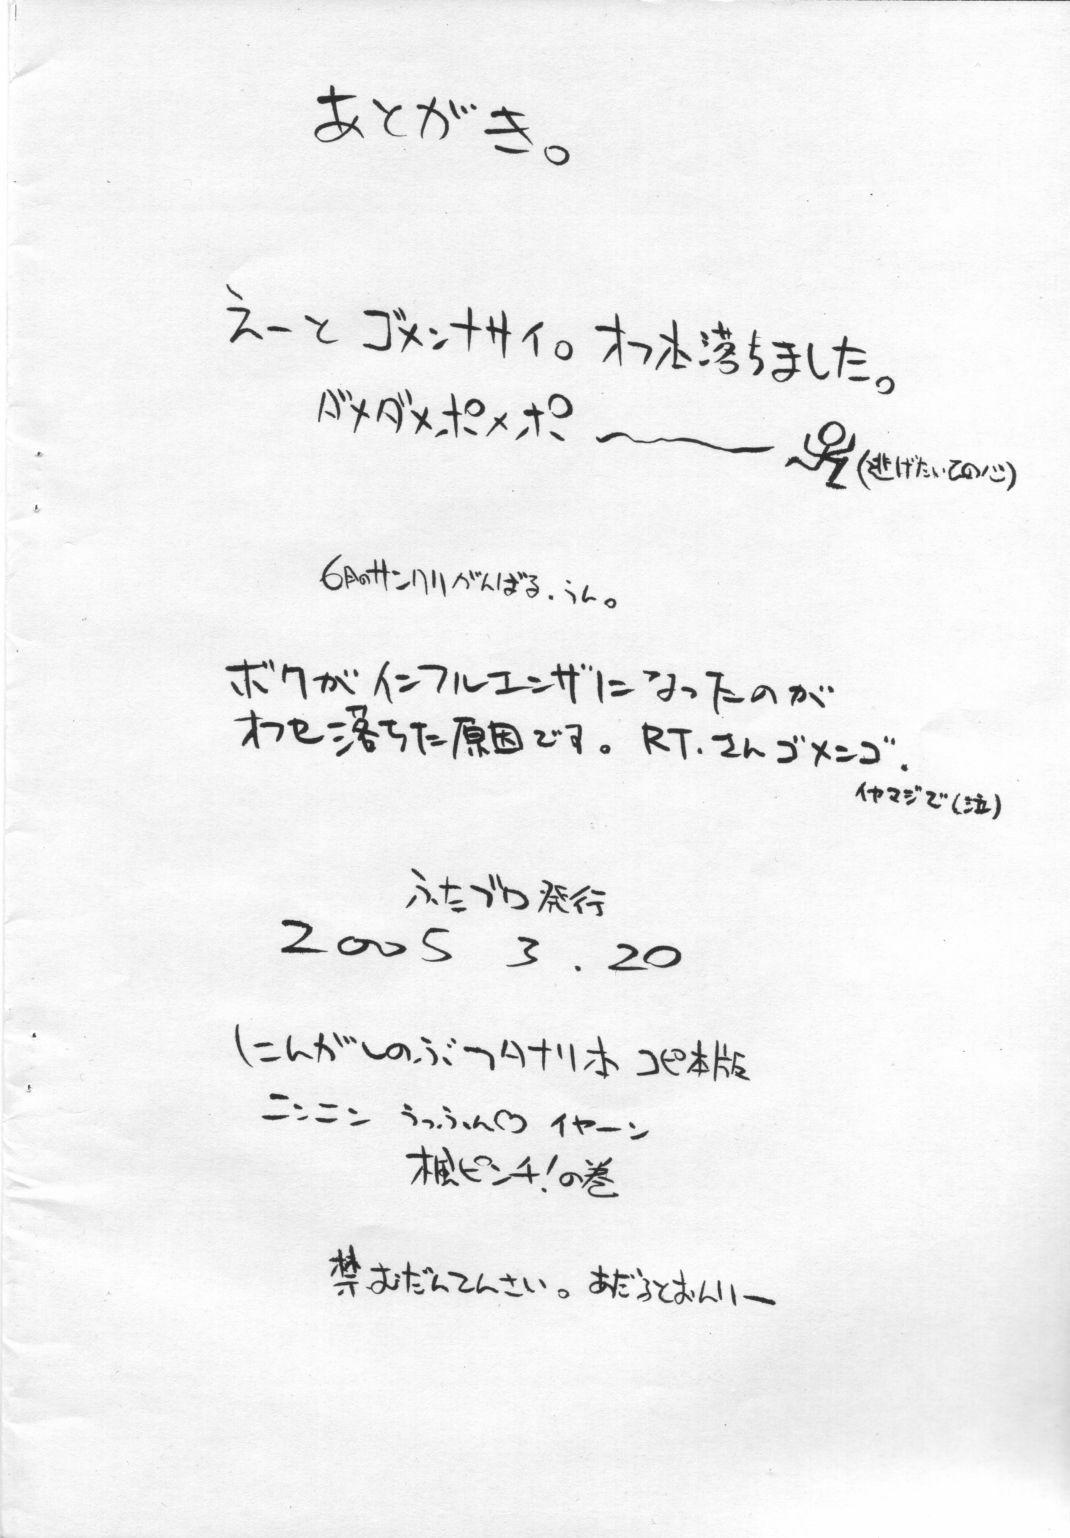 あとがき。
えーと ゴメンナサイ。オフ本落ちました。
ダメダメポ×ポ
(逃げたいての心)
6月のサンクリがんばる、うん。
ボクがインフルエンザになったのが
オフセ落ちた原因です。RT.さんゴメンゴ.
イヤマジで(泣)
ふたプロ発行
2005 3.20
にんがしのぶ フタナリ本 コピ本版
ニンニン うっふん♡ イヤーン
楓ピンチ!の巻
禁むだんてんさい。あだるとおんりー